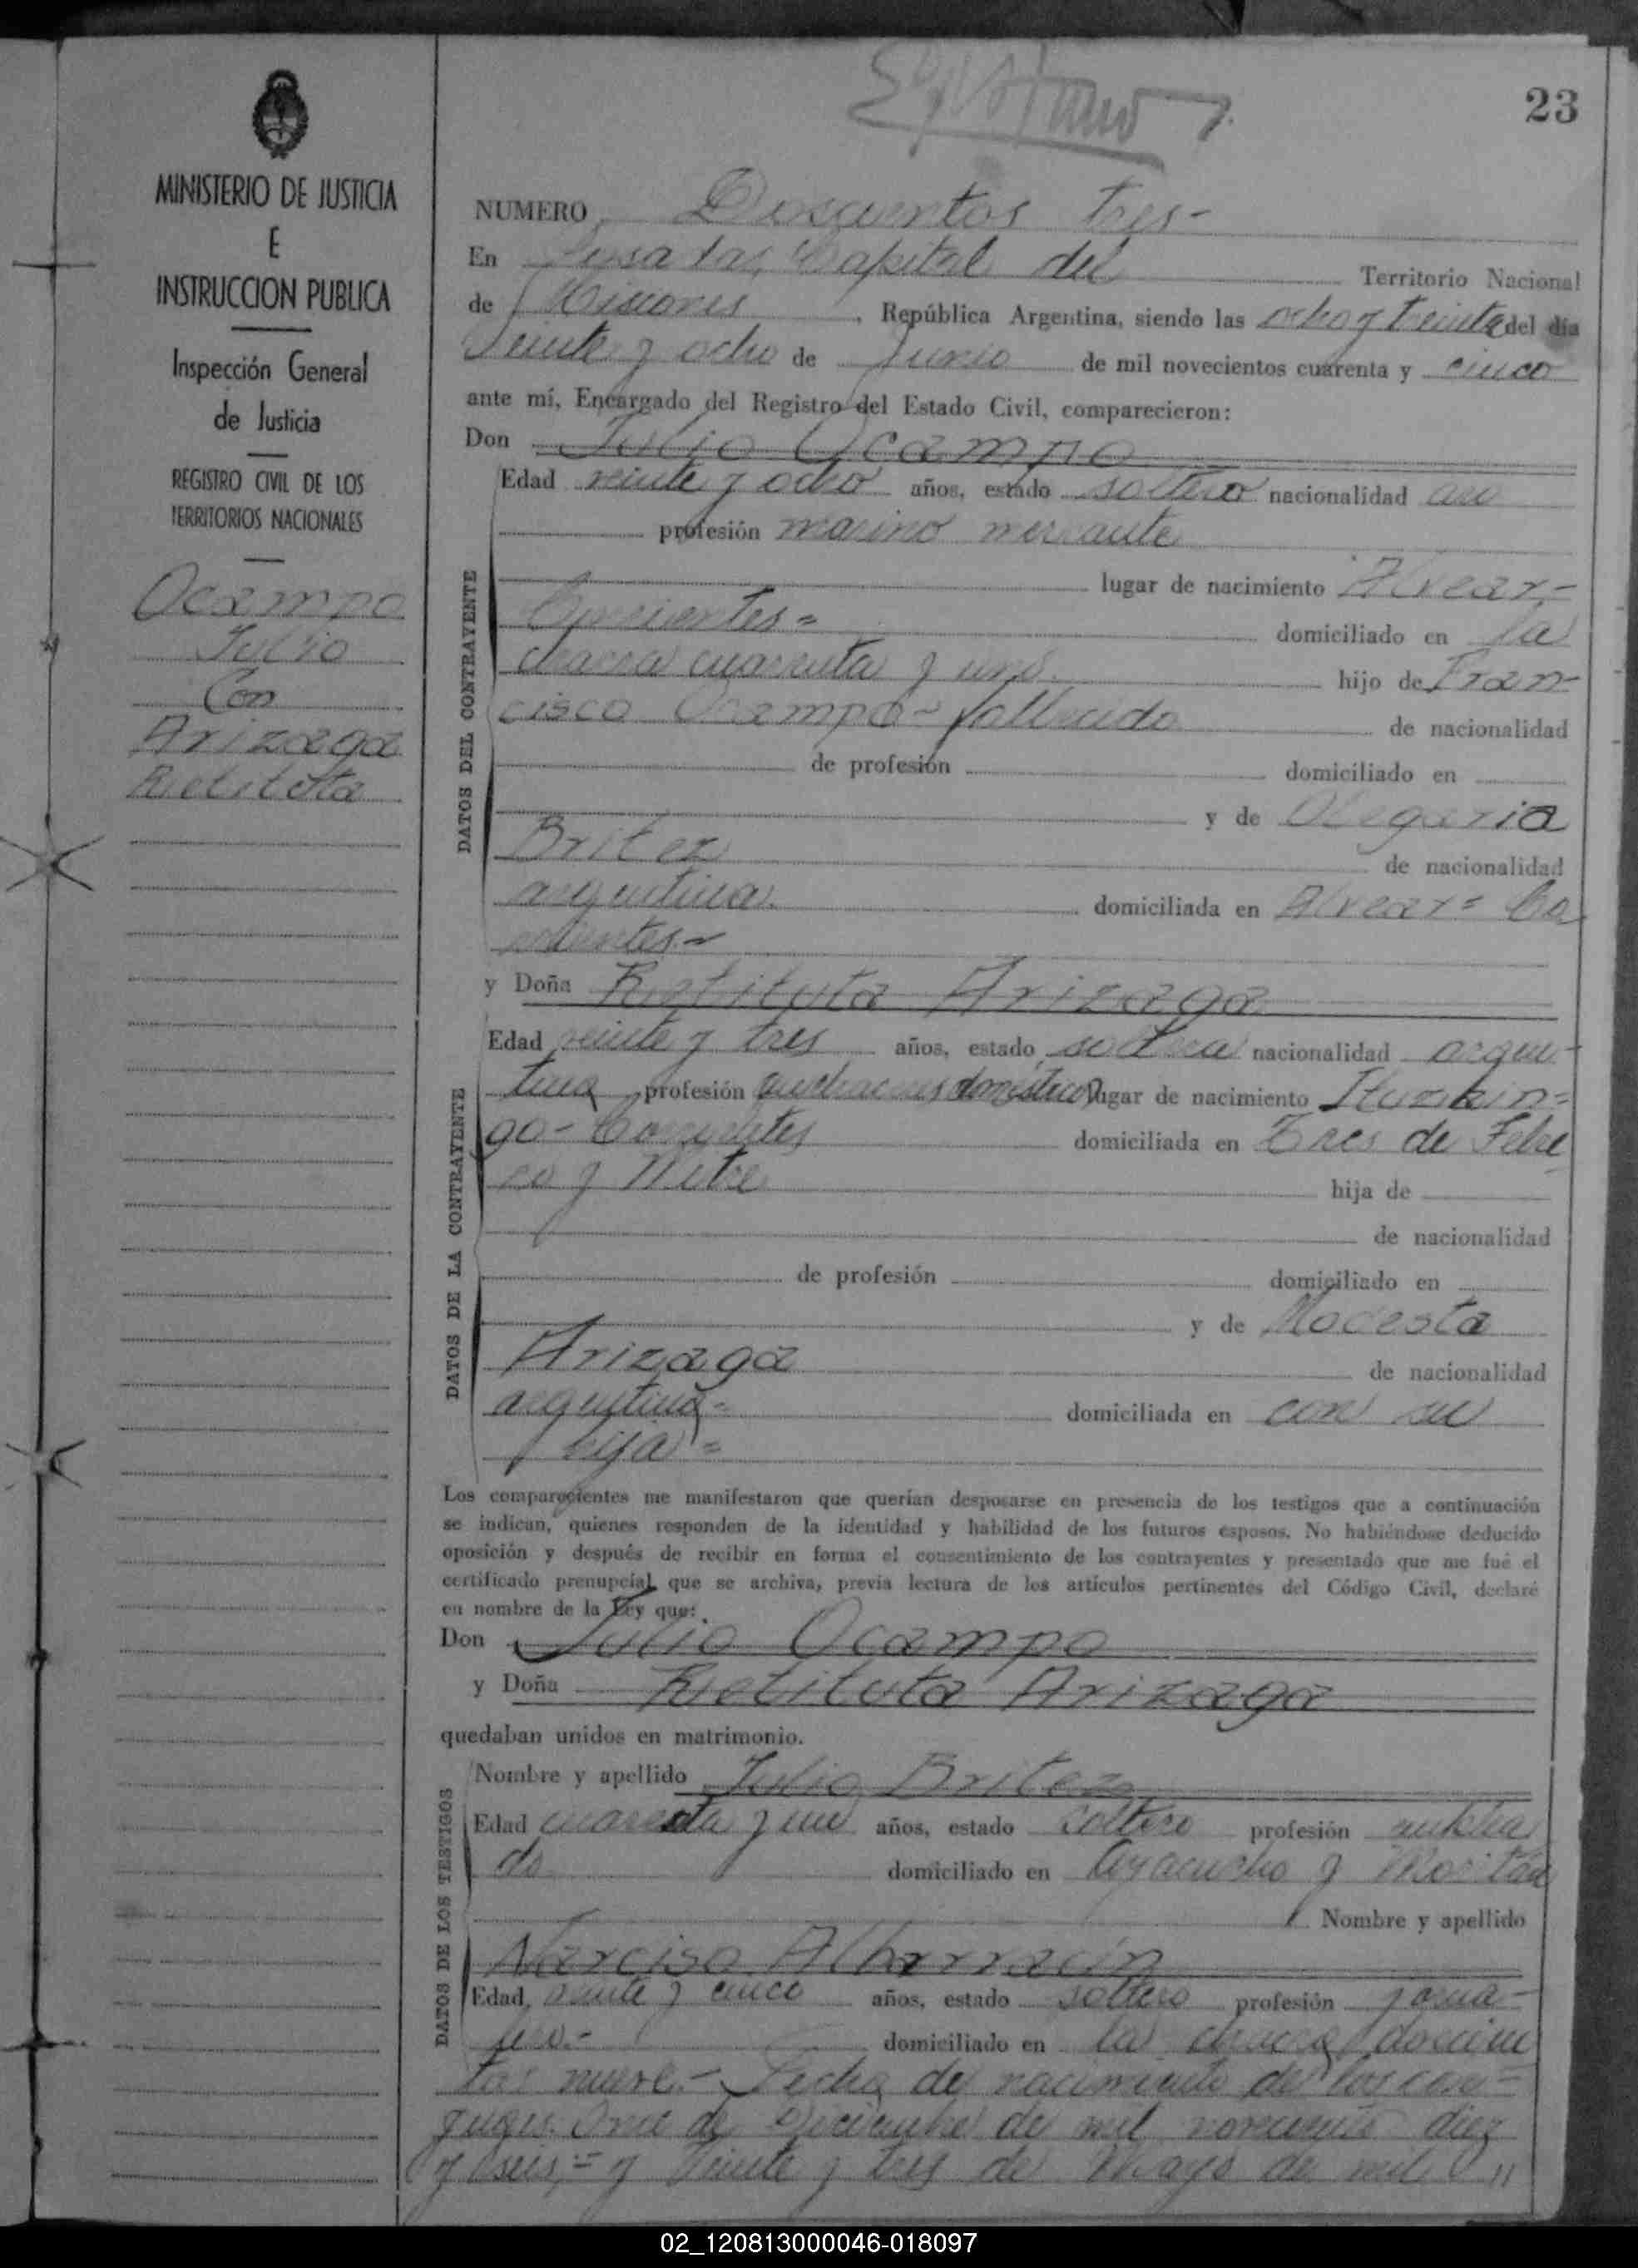 23
MINISTERIO DE JUSTICIA
E
INSTRUCCION PUBLICA
Inspección General
de Justicia
REGISTRO CIVIL DE LOS
TERRITORIOS NACIONALES
Ocampo
Julio
Con
Arizaga
Retituta
NUMERO Doscientos tres-
En Posadas, Capital del Territorio Nacional
de Misiones, República Argentina, siendo las ocho y treinta del día
veinte y ocho de Junio de mil novecientos cuarenta y cinco
ante mí, Encargado del Registro del Estado Civil, comparecieron:
Don Julio Ocampo
Edad veinte y ocho años, estado soltero nacionalidad
profesión marino mercante
lugar de nacimiento Alvear-
Corrientes= domiciliado en la
chacra cuarenta y uno. hijo de Fran-
cisco Ocampo- fallecido de nacionalidad
de profesión domiciliado en
y de Olegaria
Britez de nacionalidad
argentina. domiciliada en Alvear= Co
rrientes.-
y Doña Restituta Arizaga
Edad veinte y tres años, estado soltera nacionalidad argen-
tina, profesión quehaceres domésticos lugar de nacimiento Ituzain=
go- Corrientes domiciliada en Tres de Febre
ro y Mitre hija de
de nacionalidad
de profesión domiciliado en
y de Modesta
Arizaga de nacionalidad
argentina= domiciliada en con su
hija=
Los comparecientes me manifestaron que querían desposarse en presencia de los testigos que a continuación
se indican, quienes responden de la identidad y habilidad de los futuros esposos. No habiéndose deducido
oposición y después de recibir en forma el consentimiento de los contrayentes y presentado que me fué el
certificado prenupcial que se archiva, previa lectura de los artículos pertinentes del Código Civil, declaré
en nombre de la Ley que:
Don Julio Ocampo
y Doña Retituta Arizaga
quedaban unidos en matrimonio.
Nombre y apellido Julio Britez
Edad cuarenta y un años, estado soltero profesión emplea
do domiciliado en Ayacucho y
Nombre y apellido
Narciso Albarracín
Edad veinte y cinco años, estado soltero profesión jorna-
lero.- domiciliado en la chacra doscien
tos nueve.- Fecha de nacimiento de los con=
yuges. Once de Diciembre de mil novecientos diez
y seis,= y Veinte y tres de Mayo de mil "
DATOS DEL CONTRAYENTE
DATOS DE LA CONTRAYENTE
DATOS DE LOS TESTIGOS
02_120813000046-018097